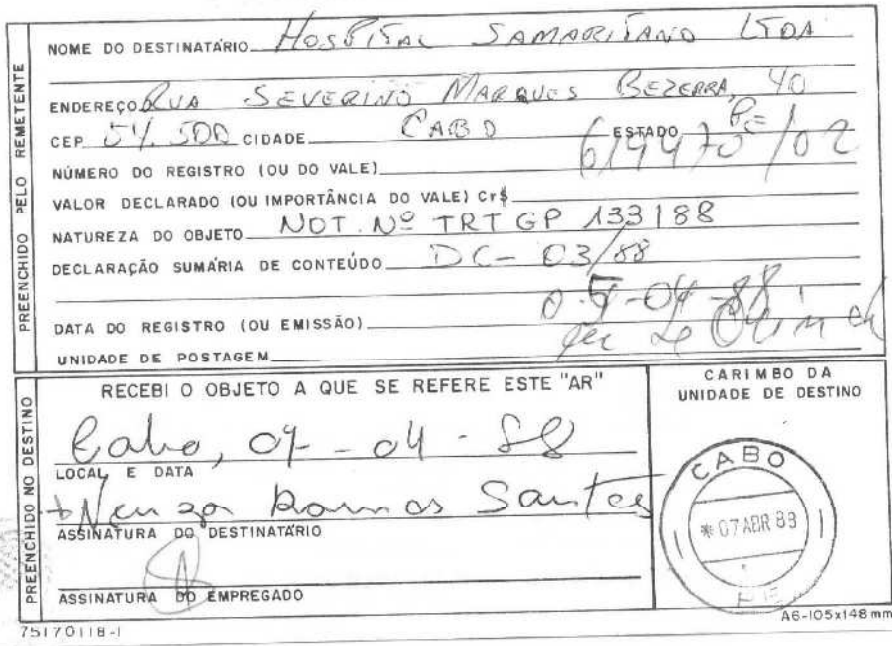 NOME DO DESTINATÁRIO HOSPITAL SAMARITANO LTDA
ENDEREÇO RUA SEVERINO MARQUES BEZERRA, 40
CEP 54.500 CIDADE CABO ESTADO Pe
619470/02
NÚMERO DO REGISTRO (OU DO VALE)
VALOR DECLARADO (OU IMPORTÂNCIA DO VALE) Cr$
NATUREZA DO OBJETO NOT. Nº TRT GP 133188
DECLARAÇÃO SUMÁRIA DE CONTEÚDO DC- 03/88
DATA DO REGISTRO (OU EMISSÃO) 05-04-88
UNIDADE DE POSTAGEM
PREENCHIDO PELO REMETENTE
RECEBI O OBJETO A QUE SE REFERE ESTE "AR"
Cabo, 07-04-88
LOCAL E DATA
Neuza Ramos Santos
ASSINATURA DO DESTINATÁRIO
ASSINATURA DO EMPREGADO
PREENCHIDO NO DESTINO
CARIMBO DA
UNIDADE DE DESTINO
CABO
* 07 ABR 88
PE
75170118-1
A6-105x148 mm